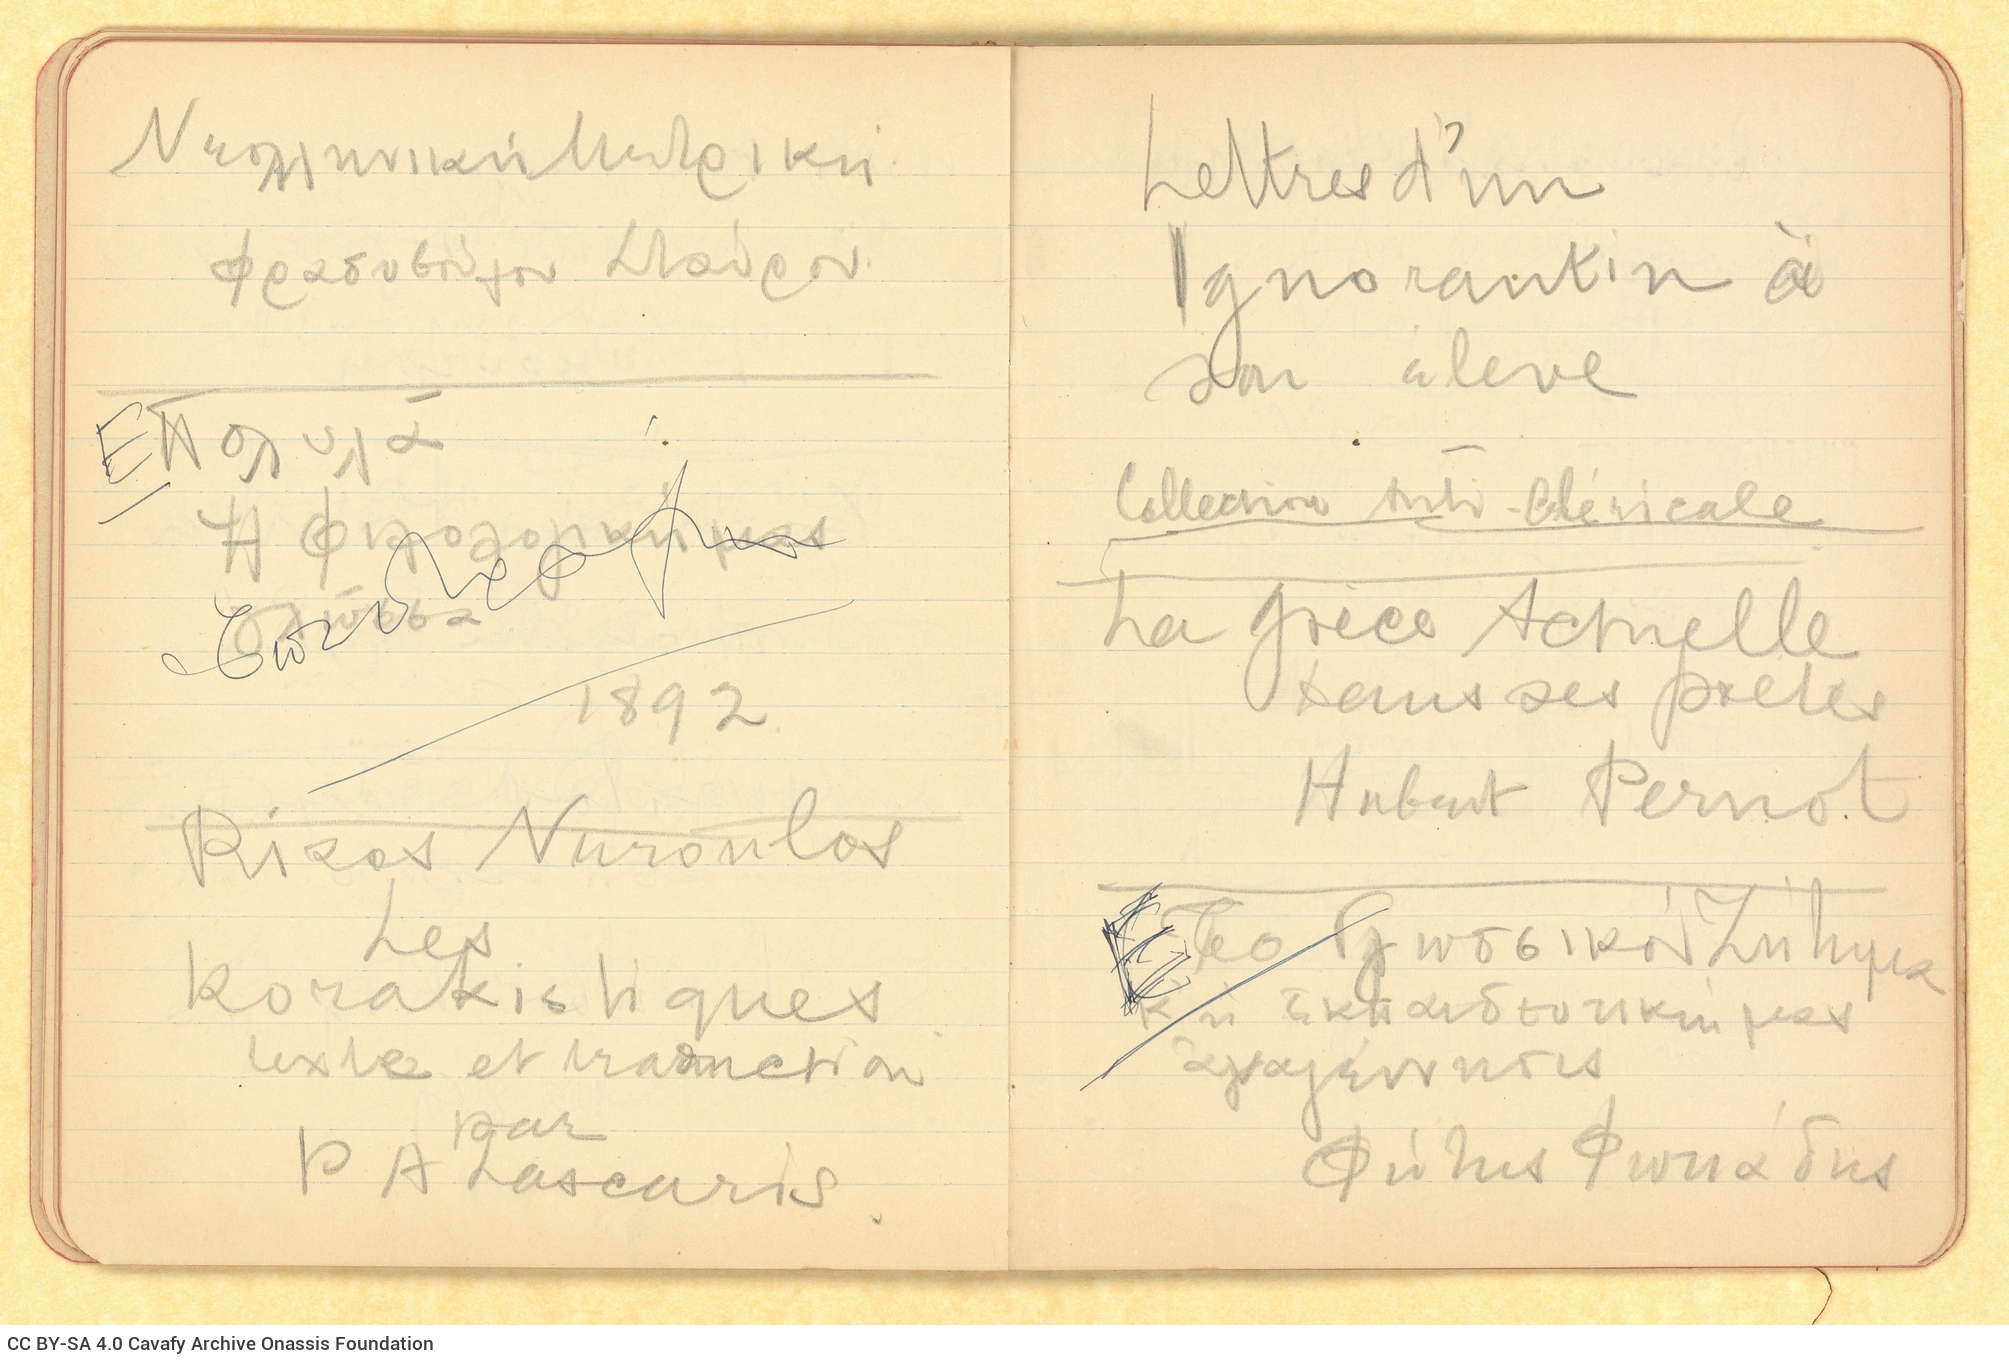 Νεολληνική Μετρική
Θρασυβούλου Σταύρου
Ε Πολυλά
Ἡ φιλολογική μας
γλῶσσα
1892
Rizos Nuroulos
Les
Korakistiques
texte et traduction
par
P A Lascaris.
Lettres d'un
Ignorantin à
son élève
Collection Anti-Cléricale
La Grèce Actuelle
dans ses poètes
Hubert Pernot
Ε Το Γλωσσικὸ Ζήτημα
κ' ἡ ἐκπαιδευτική μας
ἀναγέννησις
Φώτης Φωτιάδης
CC BY-SA 4.0 Cavafy Archive Onassis Foundation